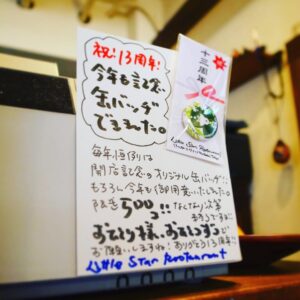 祝!13周年!
今年も記念
缶バッヂ
でましたー。
毎年恒例の
開店記念のオリジナル缶バッヂ!!
もちろん今年も御用意いたしました。
限定500コ!!なくなり次第
終了です
おひとり様、おひとつずつで
お願いしますね!ありがとう13周年!!
Little Star Restaurant
十三周年
Little Star Restaurant